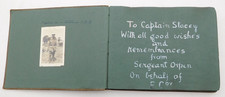 To Captain Stacey
With all good wishes
and
remembrances
from
Sergeant
On behalf of